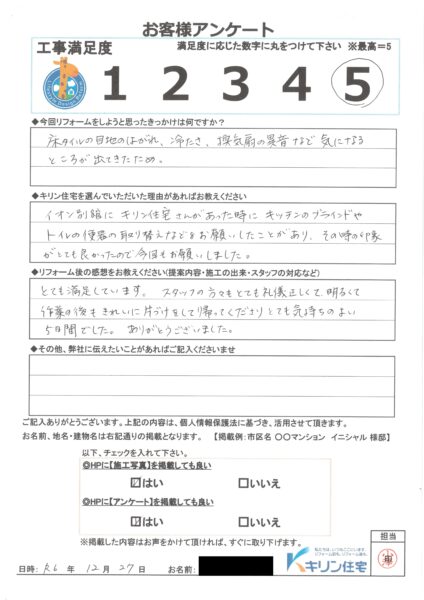 お客様アンケート
工事満足度
満足度に応じた数字に丸をつけて下さい ※最高=5
1 2 3 4 5
◆今回リフォームをしようと思ったきっかけは何ですか?
床タイルの目地のはがれ、冷たさ、換気扇の異音など気になる
ところが出てきたため。
◆キリン住宅を選んでいただいた理由があればお教えください
イオン別館にキリン住宅さんがあった時にキッチンのブラインドや
トイレの便器の取り替えなどをお願いしたことがあり、その時の印象
がとても良かったので今回もお願いしました。
◆リフォーム後の感想をお教えください(提案内容・施工の出来・スタッフの対応など)
とても満足しています。スタッフの方々もとても礼儀正しくて、明るくて
作業の後もきれいに片づけをして帰ってくださりとても気持ちのよい
5日間でした。ありがとうございました。
◆その他、弊社に伝えたいことがあればご記入くださいませ
ご記入ありがとうございます。上記の内容は、個人情報保護法に基づき、活用させて頂きます。
お名前、地名・建物名は右記通りの掲載となります。 【掲載例:市区名 〇〇マンション イニシャル 様邸】
以下、チェックを入れて下さい。
◎HPに【施工写真】を掲載しても良い
☑はい □いいえ
◎HPに【アンケート】を掲載しても良い
☑はい □いいえ
※掲載した内容はお声をかけて頂ければ、すぐに取り下げます。
担当
キリン住宅
日時: R6 年 12 月 27 日 お名前: